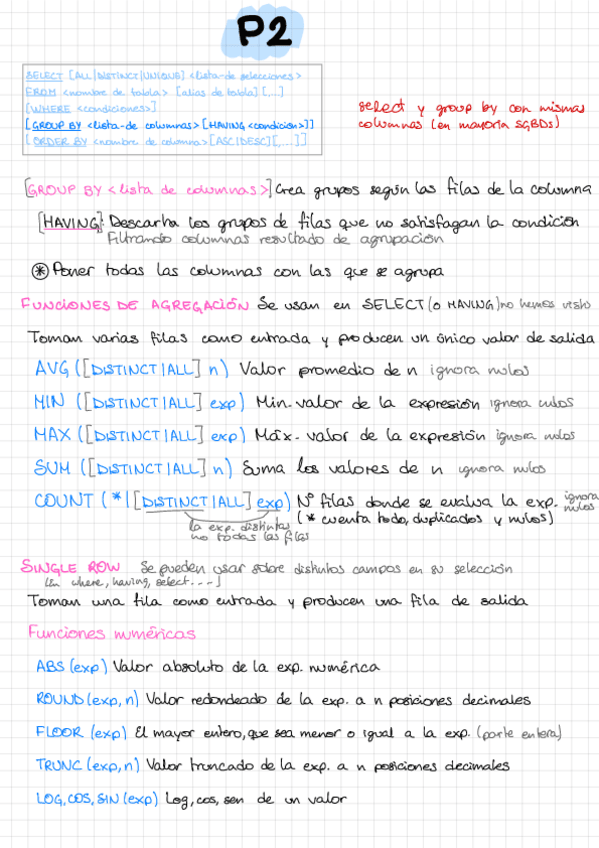 P2
SELECT [ALL|DISTINCT|UNIQUE] <lista-de selecciones>
FROM <nombre de tabla> [alias de tabla][,...]
[WHERE <condiciones>]
[GROUP BY <lista-de columnas>[HAVING <condición>]]
[ORDER BY <nombre de columna>[ASC|DESC][,...]]
select y group by con mismas
columnas (en mayoría SGBDs)
[GROUP BY <lista de columnas>] Crea grupos según las filas de la columna
[HAVING]: Descarta los grupos de filas que no satisfagan la condición
Filtrando columnas resultado de agrupación
* Poner todas las columnas con las que se agrupa
FUNCIONES DE AGREGACIÓN Se usan en SELECT (o HAVING) no hemos visto
Toman varias filas como entrada y producen un único valor de salida
AVG ([DISTINCT|ALL] n) Valor promedio de n ignora nulos
MIN ([DISTINCT|ALL] exp) Min. valor de la expresión ignora nulos
MAX ([DISTINCT|ALL] exp) Máx. valor de la expresión ignora nulos
SUM ([DISTINCT|ALL] n) Suma los valores de n ignora nulos
COUNT (*|[DISTINCT|ALL] exp) Nº filas donde se evalua la exp. ignora nulos
(* cuenta todo, duplicados y nulos)
la exp. distintas
no todas las filas
SINGLE ROW Se pueden usar sobre distintos campos en su selección
(en where, having, select....)
Toman una fila como entrada y producen una fila de salida
Funciones numéricas
ABS (exp) Valor absoluto de la exp. numérica
ROUND (exp, n) Valor redondeado de la exp. a n posiciones decimales
FLOOR (exp) El mayor entero, que sea menor o igual a la exp. (parte entera)
TRUNC (exp, n) Valor truncado de la exp. a n posiciones decimales
LOG, COS, SIN (exp) Log, cos, sen de un valor